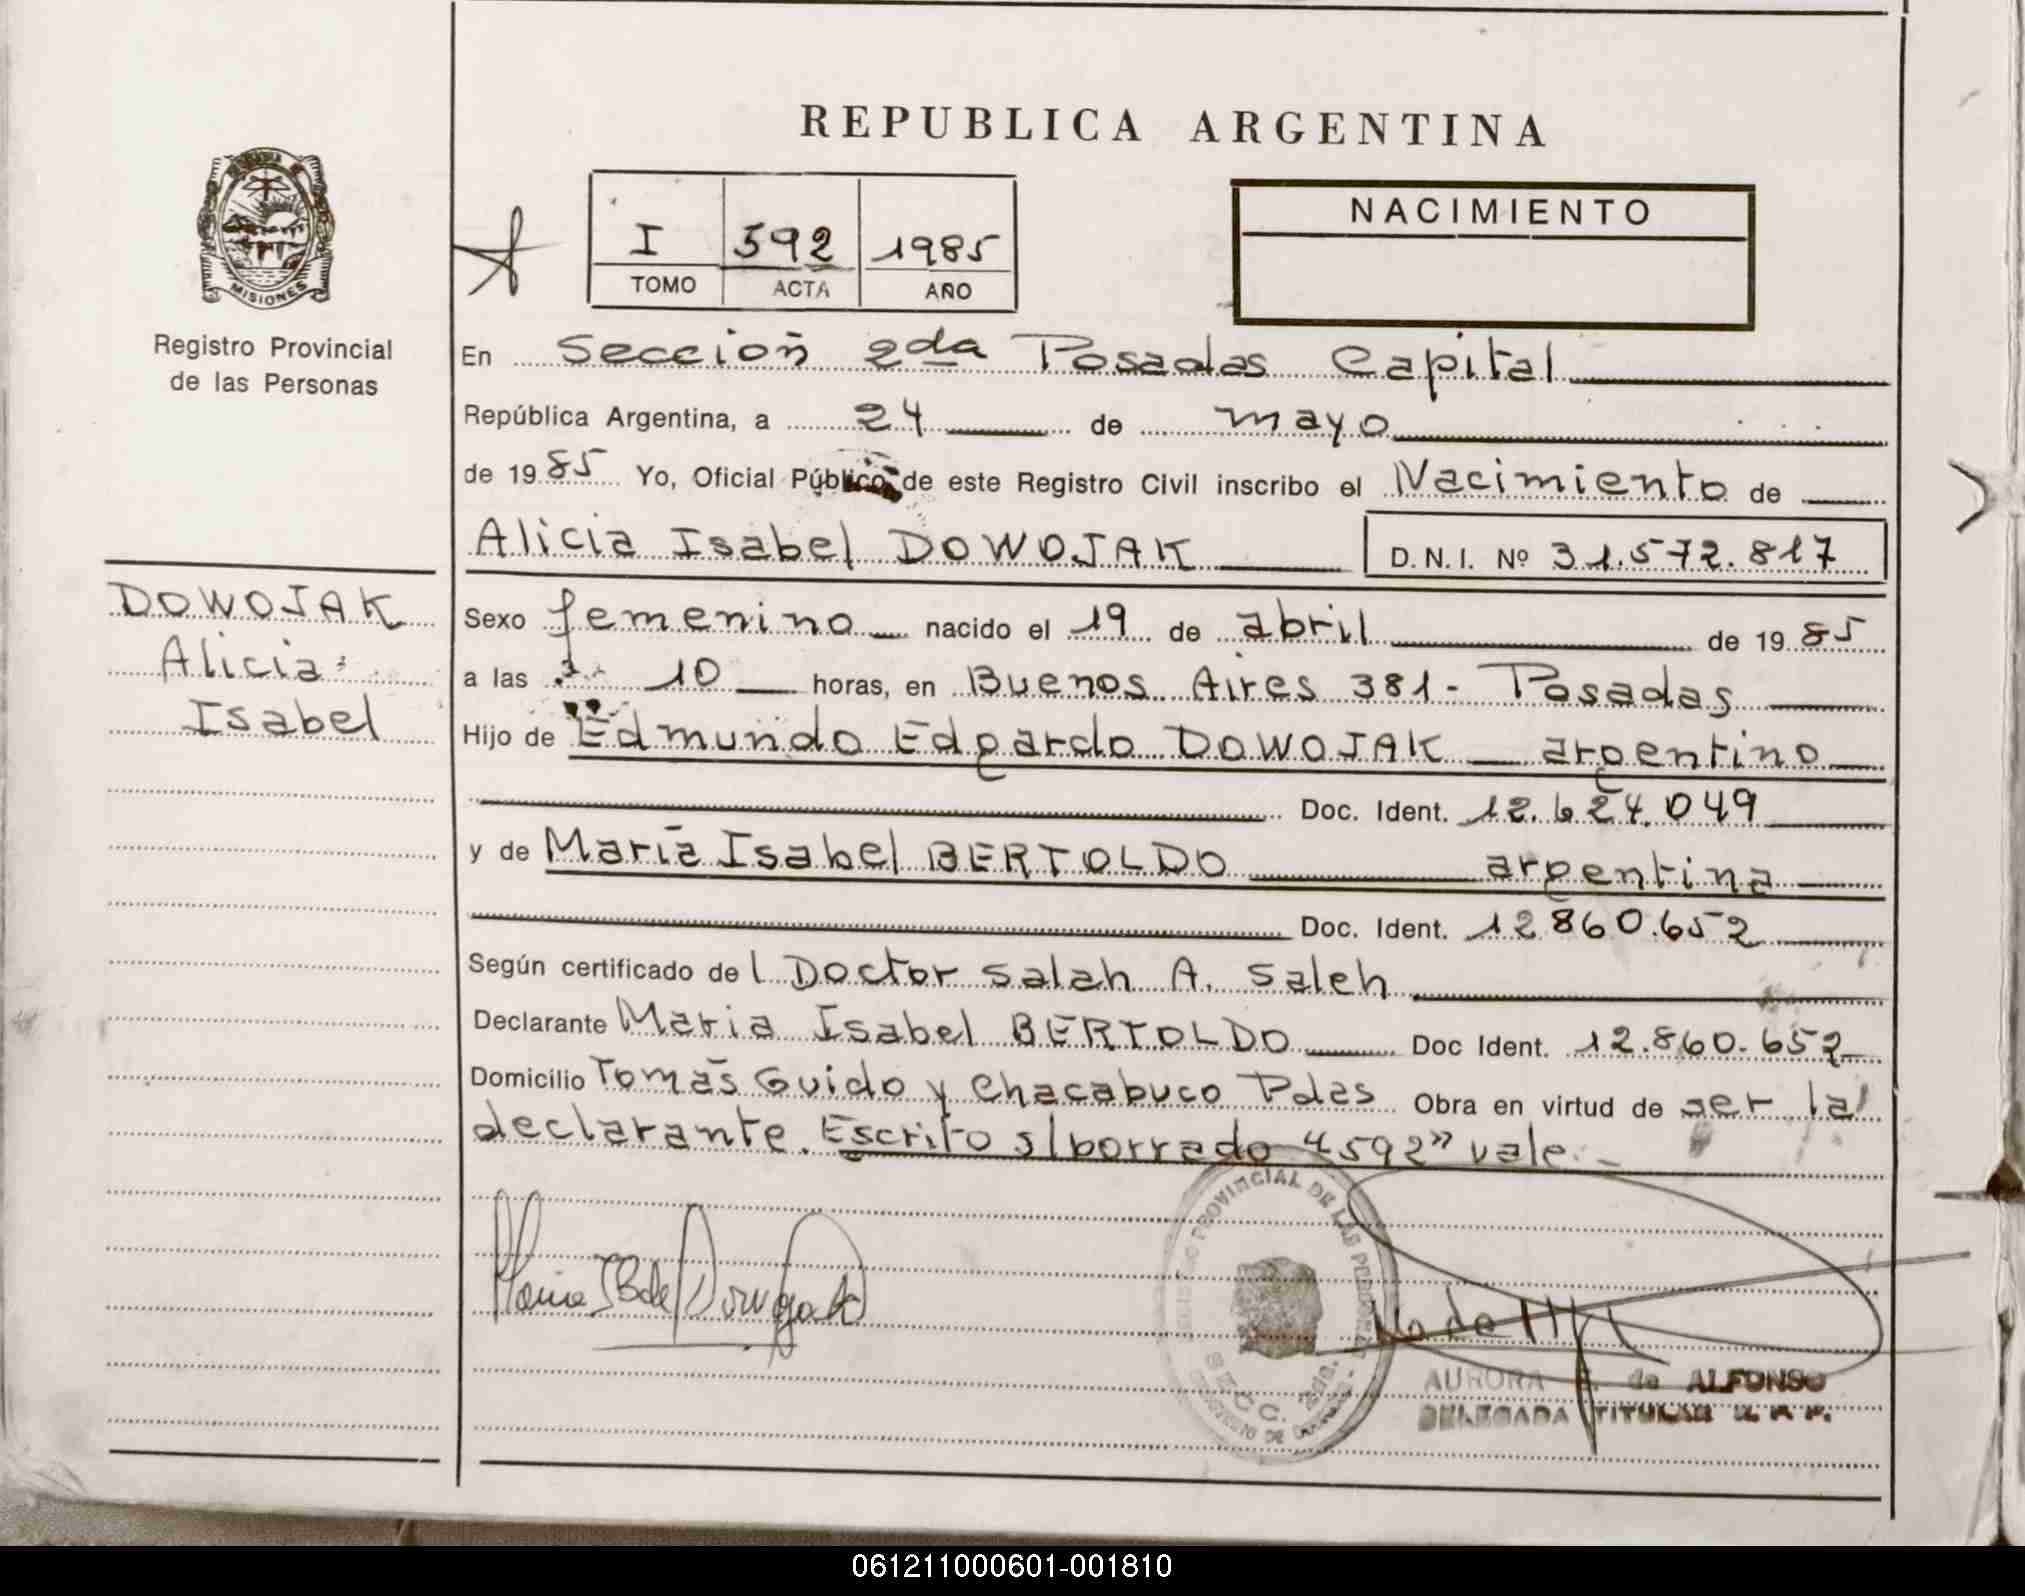 REPUBLICA ARGENTINA
MISIONES
Registro Provincial
de las Personas
I 592 1985
TOMO ACTA AÑO
NACIMIENTO
En Sección 2da Posadas Capital
República Argentina, a 24 de mayo
de 1985 Yo, Oficial Público de este Registro Civil inscribo el Nacimiento de
Alicia Isabel DOWOJAK D.N.I. Nº 31.572.817
DOWOJAK
Alicia
Isabel
Sexo femenino nacido el 19 de abril de 1985
a las 10 horas, en Buenos Aires 381- Posadas
Hijo de Edmundo Edgardo DOWOJAK argentino
Doc. Ident. 12.624.049
y de María Isabel BERTOLDO argentina
Doc. Ident. 12.860.652
Según certificado del Doctor Salah A. Saleh
Declarante Maria Isabel BERTOLDO Doc Ident. 12.860.652
Domicilio Tomás Guido y Chacabuco Pdas Obra en virtud de ser la
declarante. Escrito s/borrado "592" vale.-
PROVINCIAL DE LAS
SECC. 2da.
AURORA de ALFONSO
DELEGADA TITULAR R. P. P.
061211000601-001810